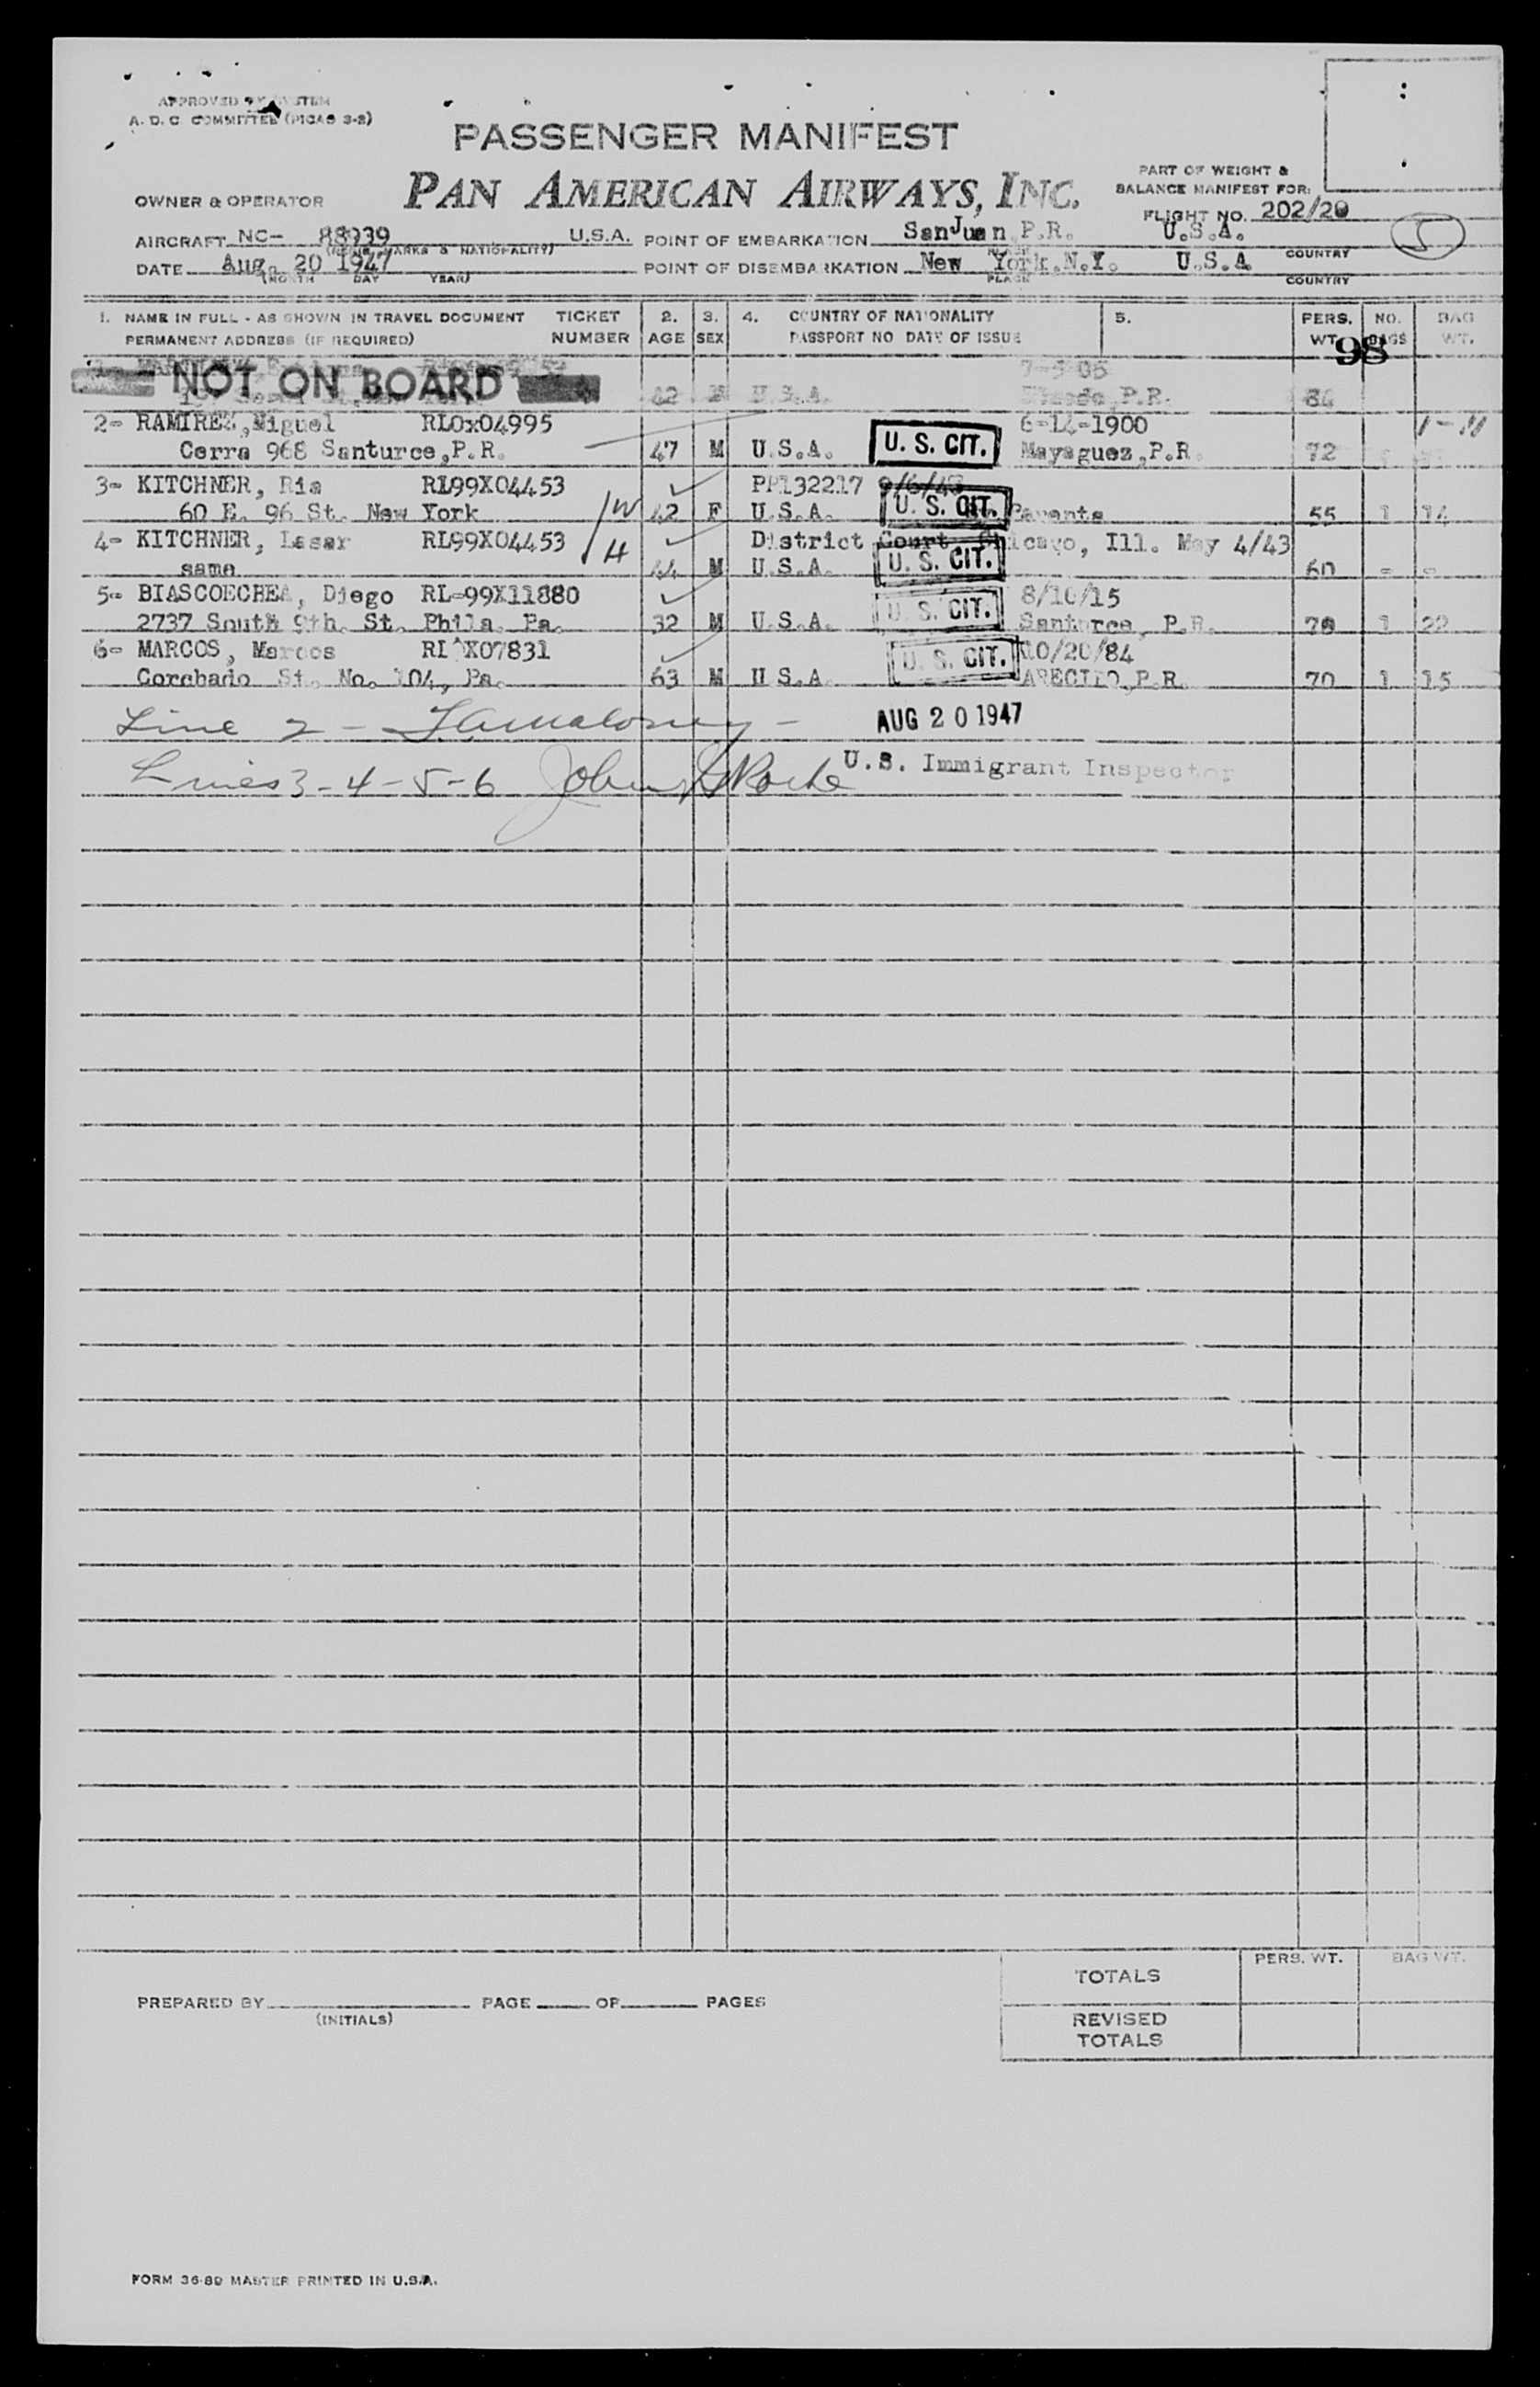 APPROVED BY SYSTEM
A. D. C COMMITTEE (PICAO 3-2)
PASSENGER MANIFEST
PAN AMERICAN AIRWAYS, INC.
PART OF WEIGHT &
BALANCE MANIFEST FOR:
FLIGHT NO. 202/20
OWNER & OPERATOR
AIRCRAFT NC- 88939 U.S.A. POINT OF EMBARKATION San Juan P.R. U.S.A. 5
MARKS & NATIONALITY) PLACE COUNTRY
DATE Aug. 20 1947 POINT OF DISEMBARKATION New York.N.Y. U.S.A
(MONTH DAY YEAR) PLACE COUNTRY
1. NAME IN FULL - AS SHOWN IN TRAVEL DOCUMENT TICKET 2. 3. 4. COUNTRY OF NATIONALITY 5. PERS. NO. BAG
PERMANENT ADDRESS (IF REQUIRED) NUMBER AGE SEX PASSPORT NO DATE OF ISSUE WT. BAGS WT.
98
NOT ON BOARD
42 U.S.A. P.R. 84
2- RAMIREZ,Miguel RLOx04995 6-14-1900
Cerra 968 Santurce,P.R. 47 M U.S.A. U. S. CIT. Mayaguez,P.R. 72
3- KITCHNER, Ria RL99X04453 PP132217 9/6/43
60 E. 96 St. New York W 42 F U.S.A. U. S. CIT. Parents 55 1 14
4- KITCHNER, Lasar RL99X04453 H District Court Chicago, Ill. May 4/43
same 44 M U.S.A. U. S. CIT. 60 - -
5- BIASCOECHEA, Diego RL-99X11880 8/10/15
2737 South 9th. St. Phila. Pa. 32 M U.S.A. U. S. CIT. Santurce, P.R. 78 1 22
6- MARCOS, Marcos X07831 10/20/84
Corchado St. No. 104, Pa. 63 M U.S.A. U. S. CIT. ARECIBO,P.R. 70 1 15
Line 2 - AUG 20 1947
Lines 3-4-5-6 U.S. Immigrant Inspector
TOTALS PERS. WT. BAG WT.
PREPARED BY PAGE OF PAGES
(INITIALS)
REVISED
TOTALS
FORM 36-80 MASTER PRINTED IN U.S.A.